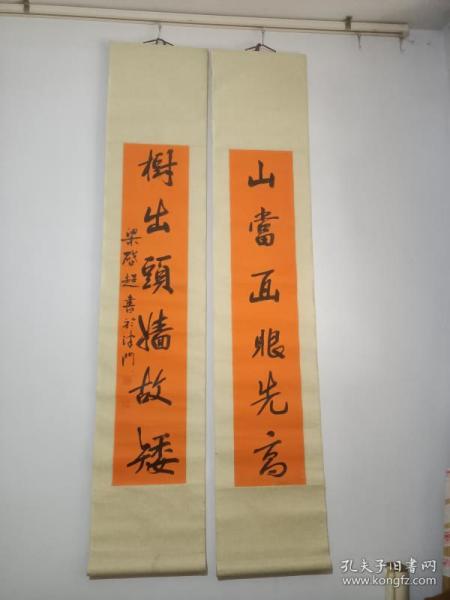 山當面眼先高
樹出頭墻故矮
梁啓超書於津門
孔夫子旧书网
www.kongfz.com